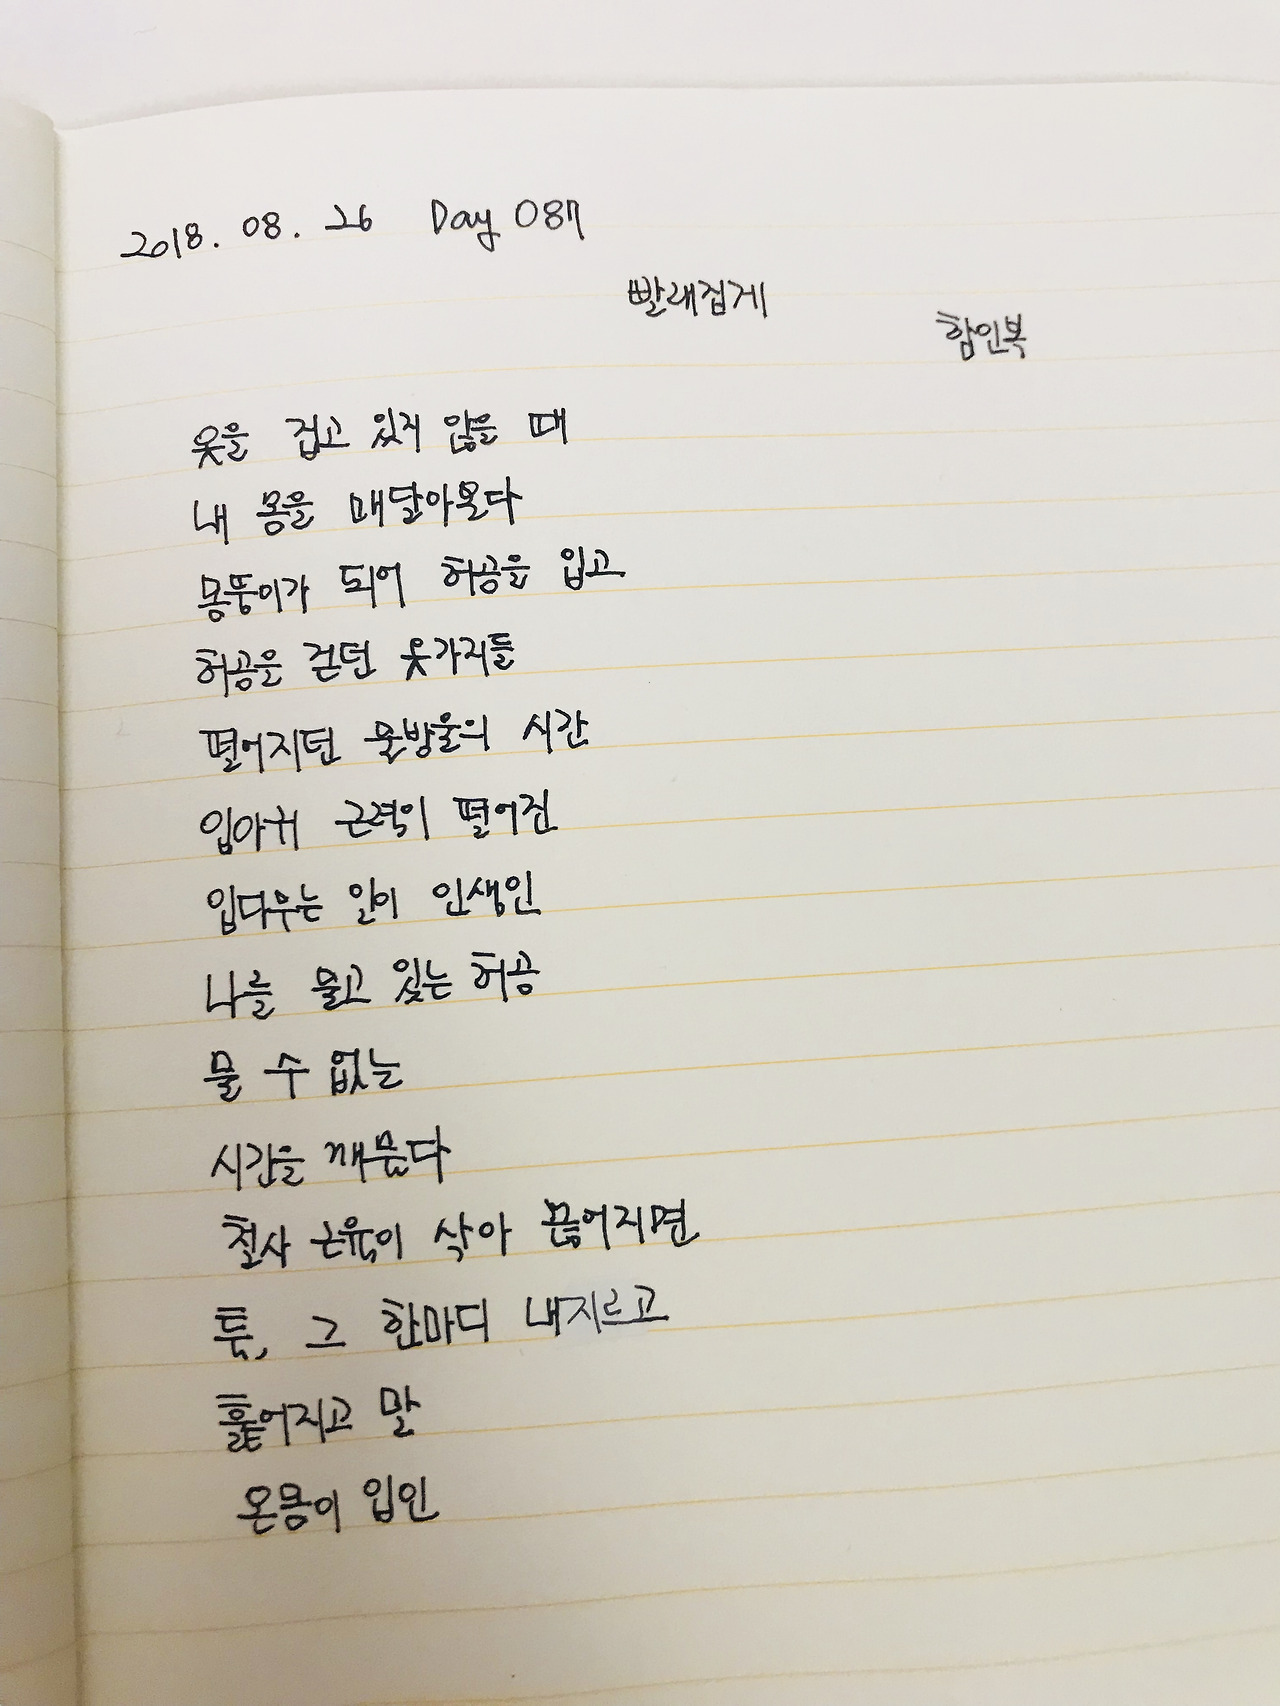 2018. 08. 26 Day 087
빨래집게
함민복
옷을 겁고 있지 않을 때
내 몸을 매달아본다
몸뚱이가 되어 허공을 입고
허공을 걷던 옷가지들
떨어지던 물방울의 시간
입아귀 근력이 떨어진
입다무는 일이 인생인
나를 물고 있는 허공
물 수 없는
시간을 깨문다
철사 근육이 삭아 끊어지면
툭, 그 한마디 내지르고
흩어지고 말
온몸이 입인